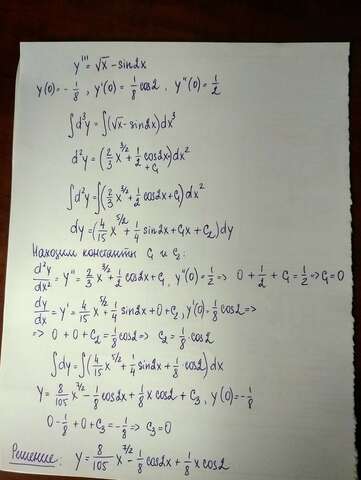 y''' = √x - sin2x
y(0) = -1/8, y'(0) = 1/8 cos2, y''(0) = 1/2
∫d³y = ∫(√x - sin2x)dx³
d²y = (2/3 x^3/2 + 1/2 cos2x + C₁)dx²
∫d²y = ∫(2/3 x^3/2 + 1/2 cos2x + C₁)dx²
dy = (4/15 x^5/2 + 1/4 sin2x + C₁x + C₂)dy
Находим константы C₁ и C₂:
d²y/dx² = y'' = 2/3 x^3/2 + 1/2 cos2x + C₁, y''(0) = 1/2 => 0 + 1/2 + C₁ = 1/2 => C₁ = 0
dy/dx = y' = 4/15 x^5/2 + 1/4 sin2x + 0 + C₂, y'(0) = 1/8 cos2 =>
=> 0 + 0 + C₂ = 1/8 cos2 => C₂ = 1/8 · cos2
∫dy = ∫(4/15 x^5/2 + 1/4 sin2x + 1/8 · cos2)dx
y = 8/105 x^7/2 - 1/8 cos2x + 1/8 x cos2 + C₃, y(0) = -1/8
0 - 1/8 + 0 + C₃ = -1/8 => C₃ = 0
Решение: y = 8/105 x^7/2 - 1/8 cos2x + 1/8 x cos2